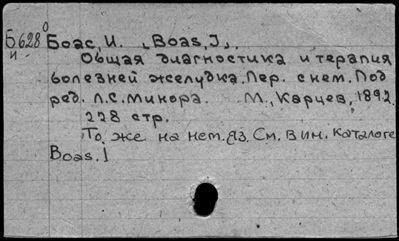 Б628
и
Боас, И. (Boas, J.).
Общая диагностика и терапия
болезней желудка. Пер. с нем. Под
ред. Л.С. Минора. М., Карцев, 1892.
228 стр.
То же на нем. яз. См. в ин. каталоге
Boas. J